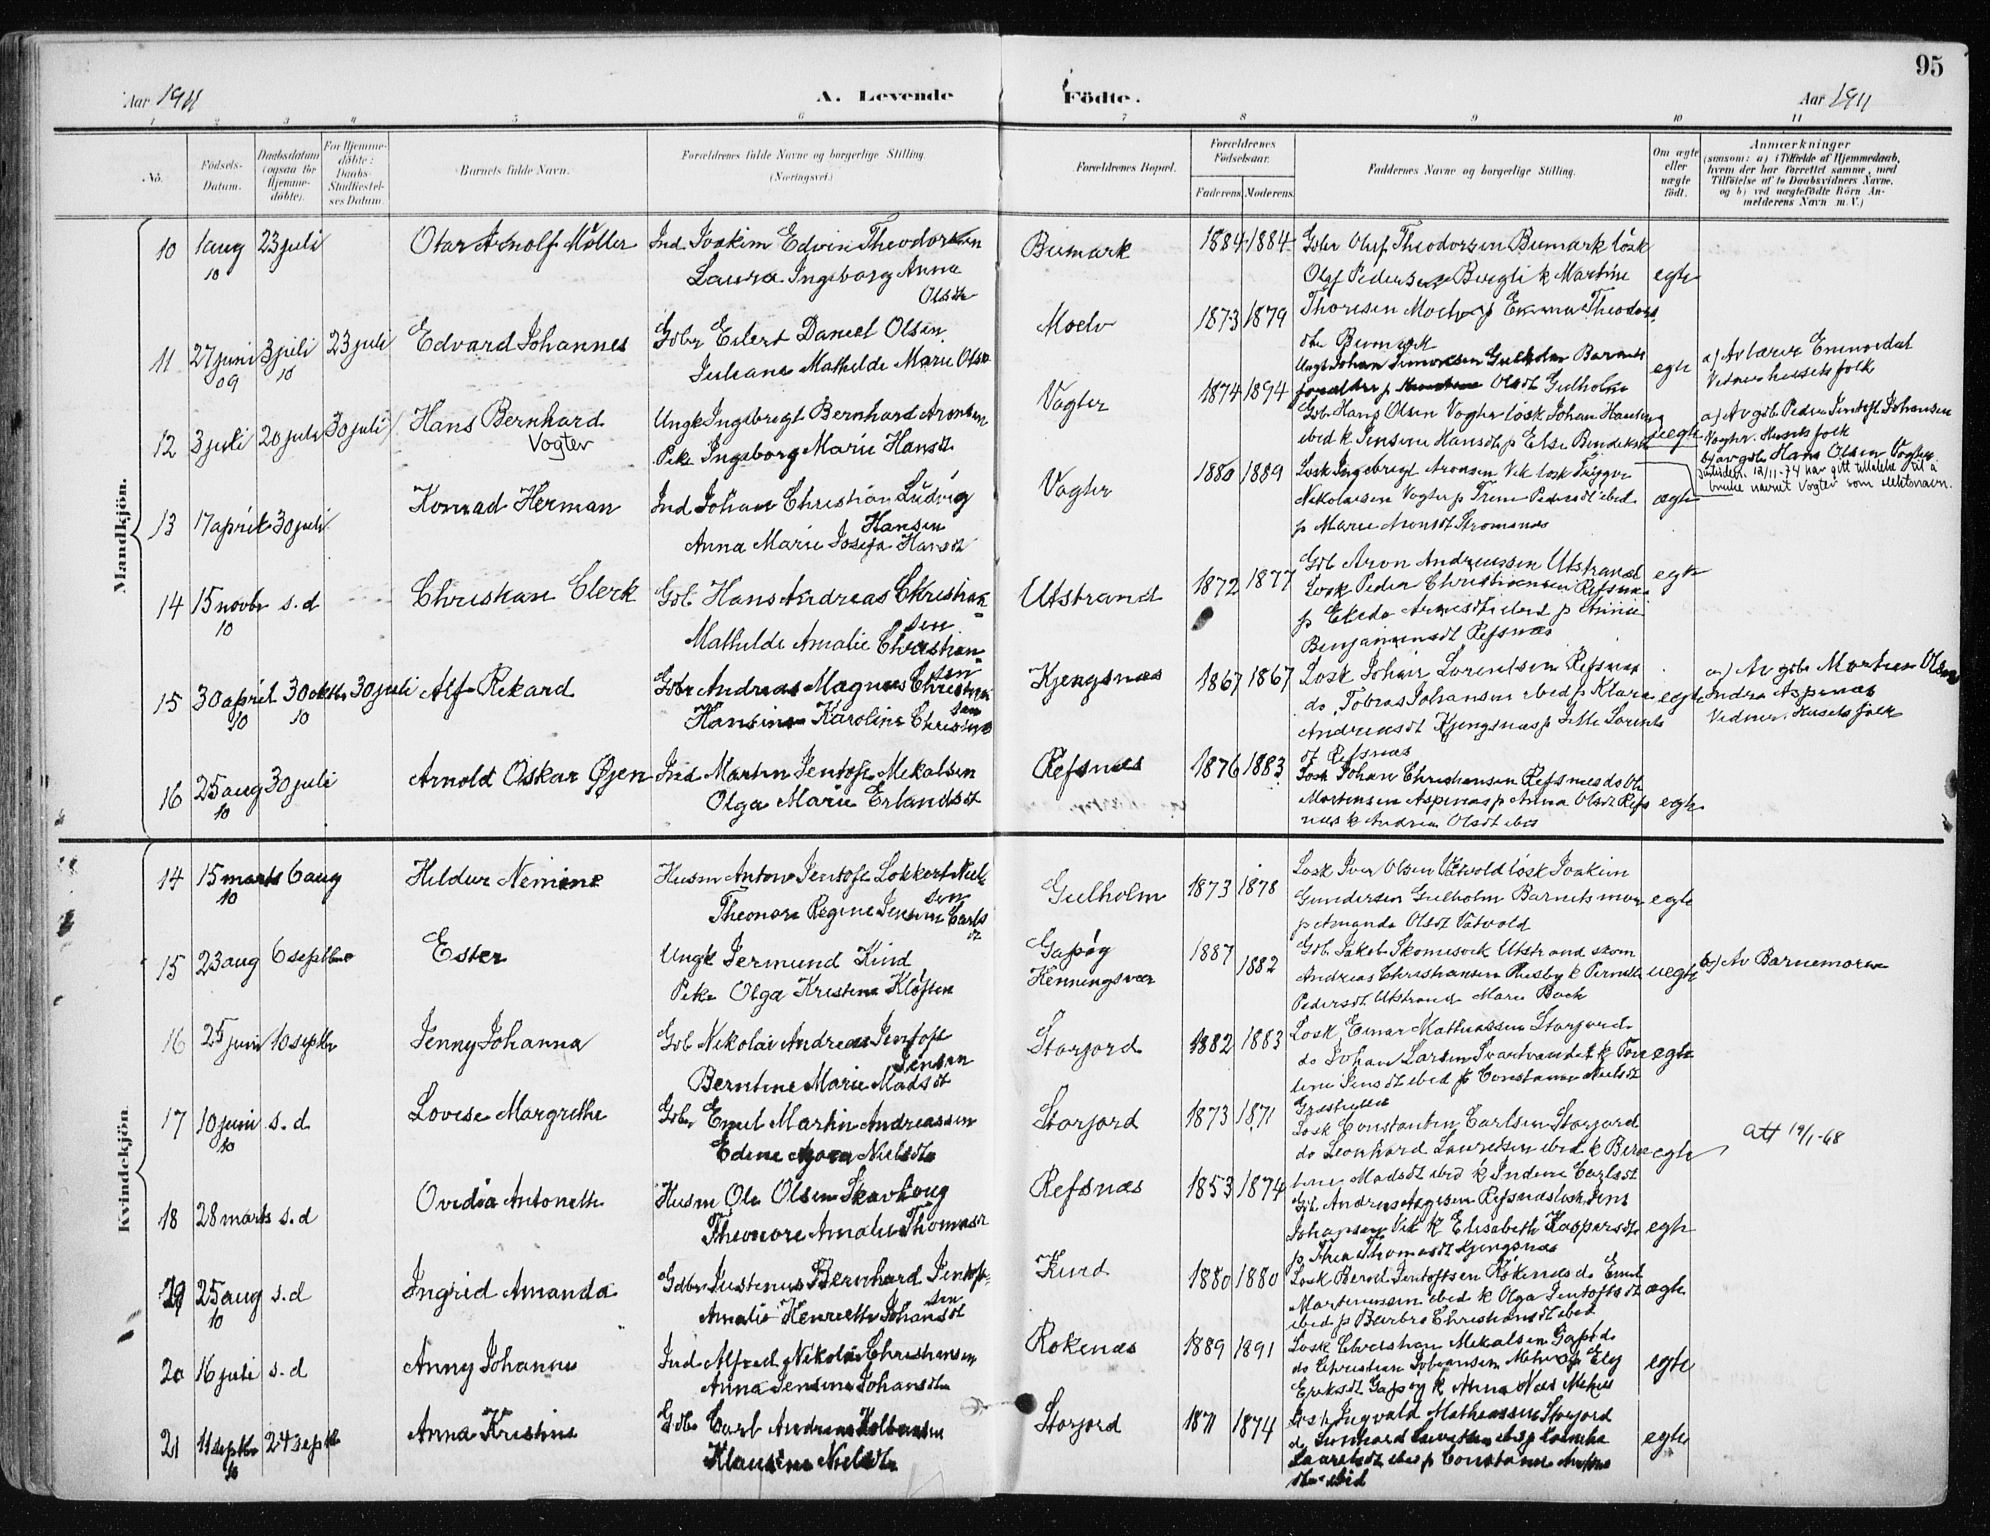 95
Aar 1911
A. Levende Födte.
Aar 1911
1 2 3 4 5 6 7 8 9 10 11
No.
Födsels-
Datum.
Daabsdatum
(ogsaa for
Hjemme-
döbte).
For Hjemme-
döbte:
Daabs-
Stadfæstel-
ses Datum.
Barnets fulde Navn.
Forældrenes fulde Navne og borgerlige Stilling.
(Næringsvei.)
Forældrenes Bopæl.
Forældrenes
Födselsaar.
Faderens. Moderens.
Faddernes Navne og borgerlige Stilling.
Om ægte
eller
uægte
födt.
Anmærkninger
(saasom: a) i Tilfælde af Hjemmedaab,
hvem der har forrettet samme, med
Tilföielse af to Daabsvidners Navne,
og b) ved uægtefödte Börn An-
melderens Navn m. V.)
Mandkjön.
10 1 aug 10 23 juli
Otar Arnolf Möller
Ind Joakim Edvin Theodorsen
Laura Ingeborg Anna
Olsdt
Bumark
1884 1884
Gbr Oluf Theodorsen Bumark lösk
Olaf Pedersen Bergli k Martine
Thoresen Moelv p Emma Theodors
dtr Bumark
egte
11 27 juni 09 3 juli 10 23 juli
Edvard Johannes
Gbr Eilert Daniel Olsen
Juliane Mathilde Marie Olsdt
Moelv
1873 1879
Ungk Johan Simonsen Gulholm Barnets
forældre p Olsdt Gulholm
egte
a) Av lærer Emmerdal
Vidner husets folk
12 3 juli 20 juli 30 juli
Hans Bernhard
Vogter
Ungk Ingebregt Bernhard Aronsen
Pike Ingeborg Marie Hansdt
Vogter
1874 1894
Gbr Hans Olsen Vogter lösk Johan Hansen
ibed k Jensine Hansdt p Else Bendiksdt
uegte
a) Av gbr Peder Jentoft Johansen
Vogter. Husets folk
b) av gbr Hans Olsen Vogter
12/11-74 har gitt tillatelse til å
bruke navnet Vogter som slektsnavn.
13 17 april 30 juli
Konrad Herman
Ind Johan Christian Ludvig
Hansen
Anna Marie Josefa Hansdt
Vogter
1880 1889
Losk Ingebregt Aronsen Vik losk Trygve
Nikolaisen Vogter p Trine Pedersdt ibed
p Marie Aronsdt Stromsnes
ægte
14 15 novbr 10 s. d
Christian Clerk
Gbr. Hans Andreas Christian-
sen
Mathilde Amalie Christian-
sen
Utstrand
1872 1877
Gbr Aron Andreassen Utstrand
Losk Peder Christiansen Refsnæs
p Elida Arnesdt ibed p Anna
Benjaminsdt Refsnæs
egte
15 30 april 10 30 oktbr 10 30 juli
Alf Rikard
Gbr Andreas Magnus Christian
sen
Hansine Karoline Christians
Kjengsnæs
1867 1867
Losk Johan Lorentsen Refsnæs
do. Tobias Johansen ibed p Klara
Andreasdt Kjengsnæs p Jille Lorents
dt Refsnæs
egte
a) Av gbr Morten Olsen
Indre Aspenæs
Vidner. Husets folk
16 25 aug 10 30 juli
Arnold Oskar Øjen
Ind Martin Jentoft Mikalsen
Olga Marie Erlandsdt
Refsnæs
1876 1883
Losk Johan Christiansen Refsnæs do Ole
Mortensen Aspenæs p Anna Olsdt Refs
næs k Andrea Olsdt ibed
egte
Kvindekjön.
14 15 marts 10 6 aug
Hildur Nemine
Husm Anton Jentoft Lokkert Niel
sen
Theonora Regine Jensen Carls
dt
Gulholm
1873 1878
Losk Iver Olsen Vatvold lösk Joakim
Gundersen Gulholm Barnets mor
p Amanda Olsdt Vatvold
egte
15 23 aug 6 septbr
Ester
Ungk Jermund Kind
Pike Olga Kristine Kløften
Gapøg
Henningsvær
1887 1882
Gbr. Jakob Skomesvik Utstrand skom
Andreas Christiansen Risby k Pernille
Pedersdt Utstrand Marie Bach
uegte
b) Av Barnemoren
16 25 juni 10 septbr
Jenny Johanna
Gbr Nikolai Andreas Jentoft
Jensen
Berntine Marie Madsdt
Storjord
1882 1883
Losk Einar Mathiassen Storjord
do Johan Larsen Svartvandet k Tom
line Jensdt ibed p Constanse Nielsdt
Græsholtet
egte
17 10 juni 10 s. d
Lovise Margrethe
Gbr Emil Martin Andreassen
Edine Nielsdt
Storjord
1873 1871
Losk Constantin Carlsen Storjord
do Leonhard Lauritsen ibed k Bern
tine Madsdt ibid k Indene Carlsdt
egte
att 19/1-68
18 28 marts s. d
Ovidia Antonette
Husm Ole Olsen Skavhaug
Theonore Amalie Thomasdt
Refsnæs
1853 1874
Gbr Andreas Aagesen Refsnæs losk Jens
Johansen Vik k Elisabeth Kaspersdt
p Thea Thomasdt Kjengsnæs
egte
19 25 aug 10 s. d
Ingrid Amanda
Gdbr Justinus Bernhard Jentoft-
sen
Amalie Henriette Johansdt
Kurd
1880 1880
Losk Berod Jentoftsen Rokenæs do Emil
Martinussen ibed k Olga Jentoftsdt
ibed p Barbro Christiansdt ibed
ægte
20 16 juli s. d
Anny Johanne
Ind Alfred Nikolai Christiansen
Anna Jensine Johansdtr
Rokenæs
1889 1891
Losk Christian Mikalsen Gapø do
do Christian Johansen p Ely
Eriksdt Gapøy k Anna Næs
egte
21 11 septbr 10 24 septbr
Anna Kristine
Gbr Carl Andreas
Klausine Nielsdtr
Storjord
1871 1874
Losk Ingvald Mathiassen Storjord
do Leonhard Lauritsen ibed p
Lauritsdt ibed p Constanse
dtr ibid
egte